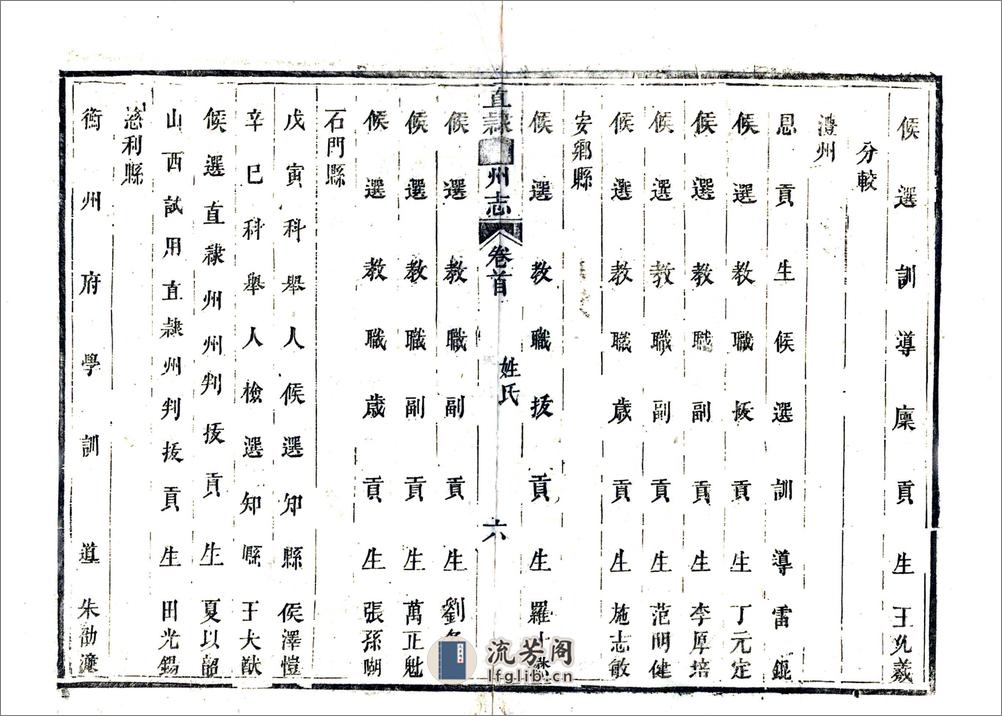 候選訓導廩貢生王兆羲
分較
澧州
恩貢生候選訓導雷鋃
候選教職拔貢生丁元定
候選教職副貢生李厚培
候選教職副貢生范明健
候選教職歲貢生施志敏
安鄉縣
候選教職拔貢生羅
直隸州志 卷首 姓氏 六
候選教職副貢生劉
候選教職副貢生萬正魁
候選教職歲貢生張孫
石門縣
戊寅科舉人候選知縣侯澤愷
辛巳科舉人檢選知縣王大猷
候選直隸州州判拔貢生夏以韶
山西試用直隸州州判拔貢生田光錫
慈利縣
衡州府學訓導朱勛濂
流芳阁
lfglib.cn